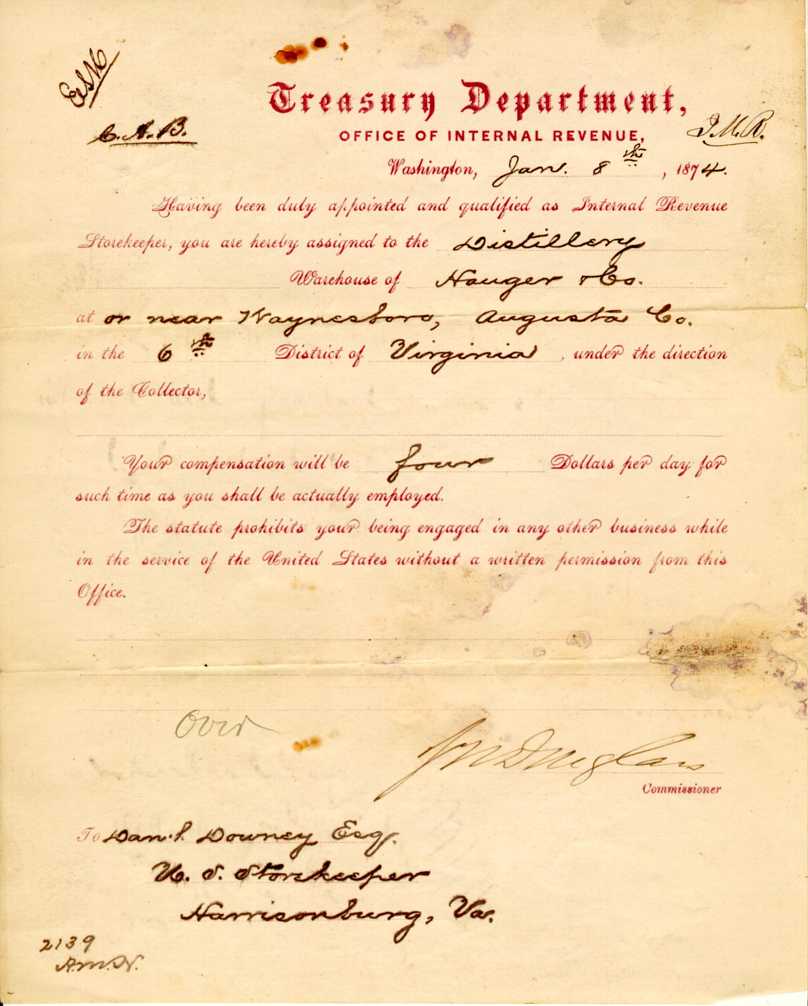 ESM
C.A.B.
Treasury Department,
OFFICE OF INTERNAL REVENUE,
J.M.R.
Washington, Jan. 8th, 1874.
Having been duly appointed and qualified as Internal Revenue
Storekeeper, you are hereby assigned to the Distillery
Warehouse of Hauger & Co.
at or near Waynesboro, Augusta Co.
in the 6th District of Virginia, under the direction
of the Collector,
Your compensation will be four Dollars per day for
such time as you shall be actually employed.
The statute prohibits your being engaged in any other business while
in the service of the United States without a written permission from this
Office.
Over
J W Douglass
Commissioner
To Danl. Downey Esq.
U. S. Storekeeper
Harrisonburg, Va.
2139